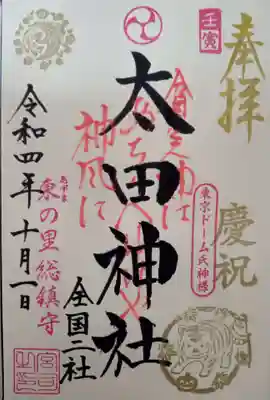 奉拝
慶祝
壬寅
東京ドーム氏神様
太田神社
全国二社
神風に
あずま
東の里総鎮守
令和四年十月一日